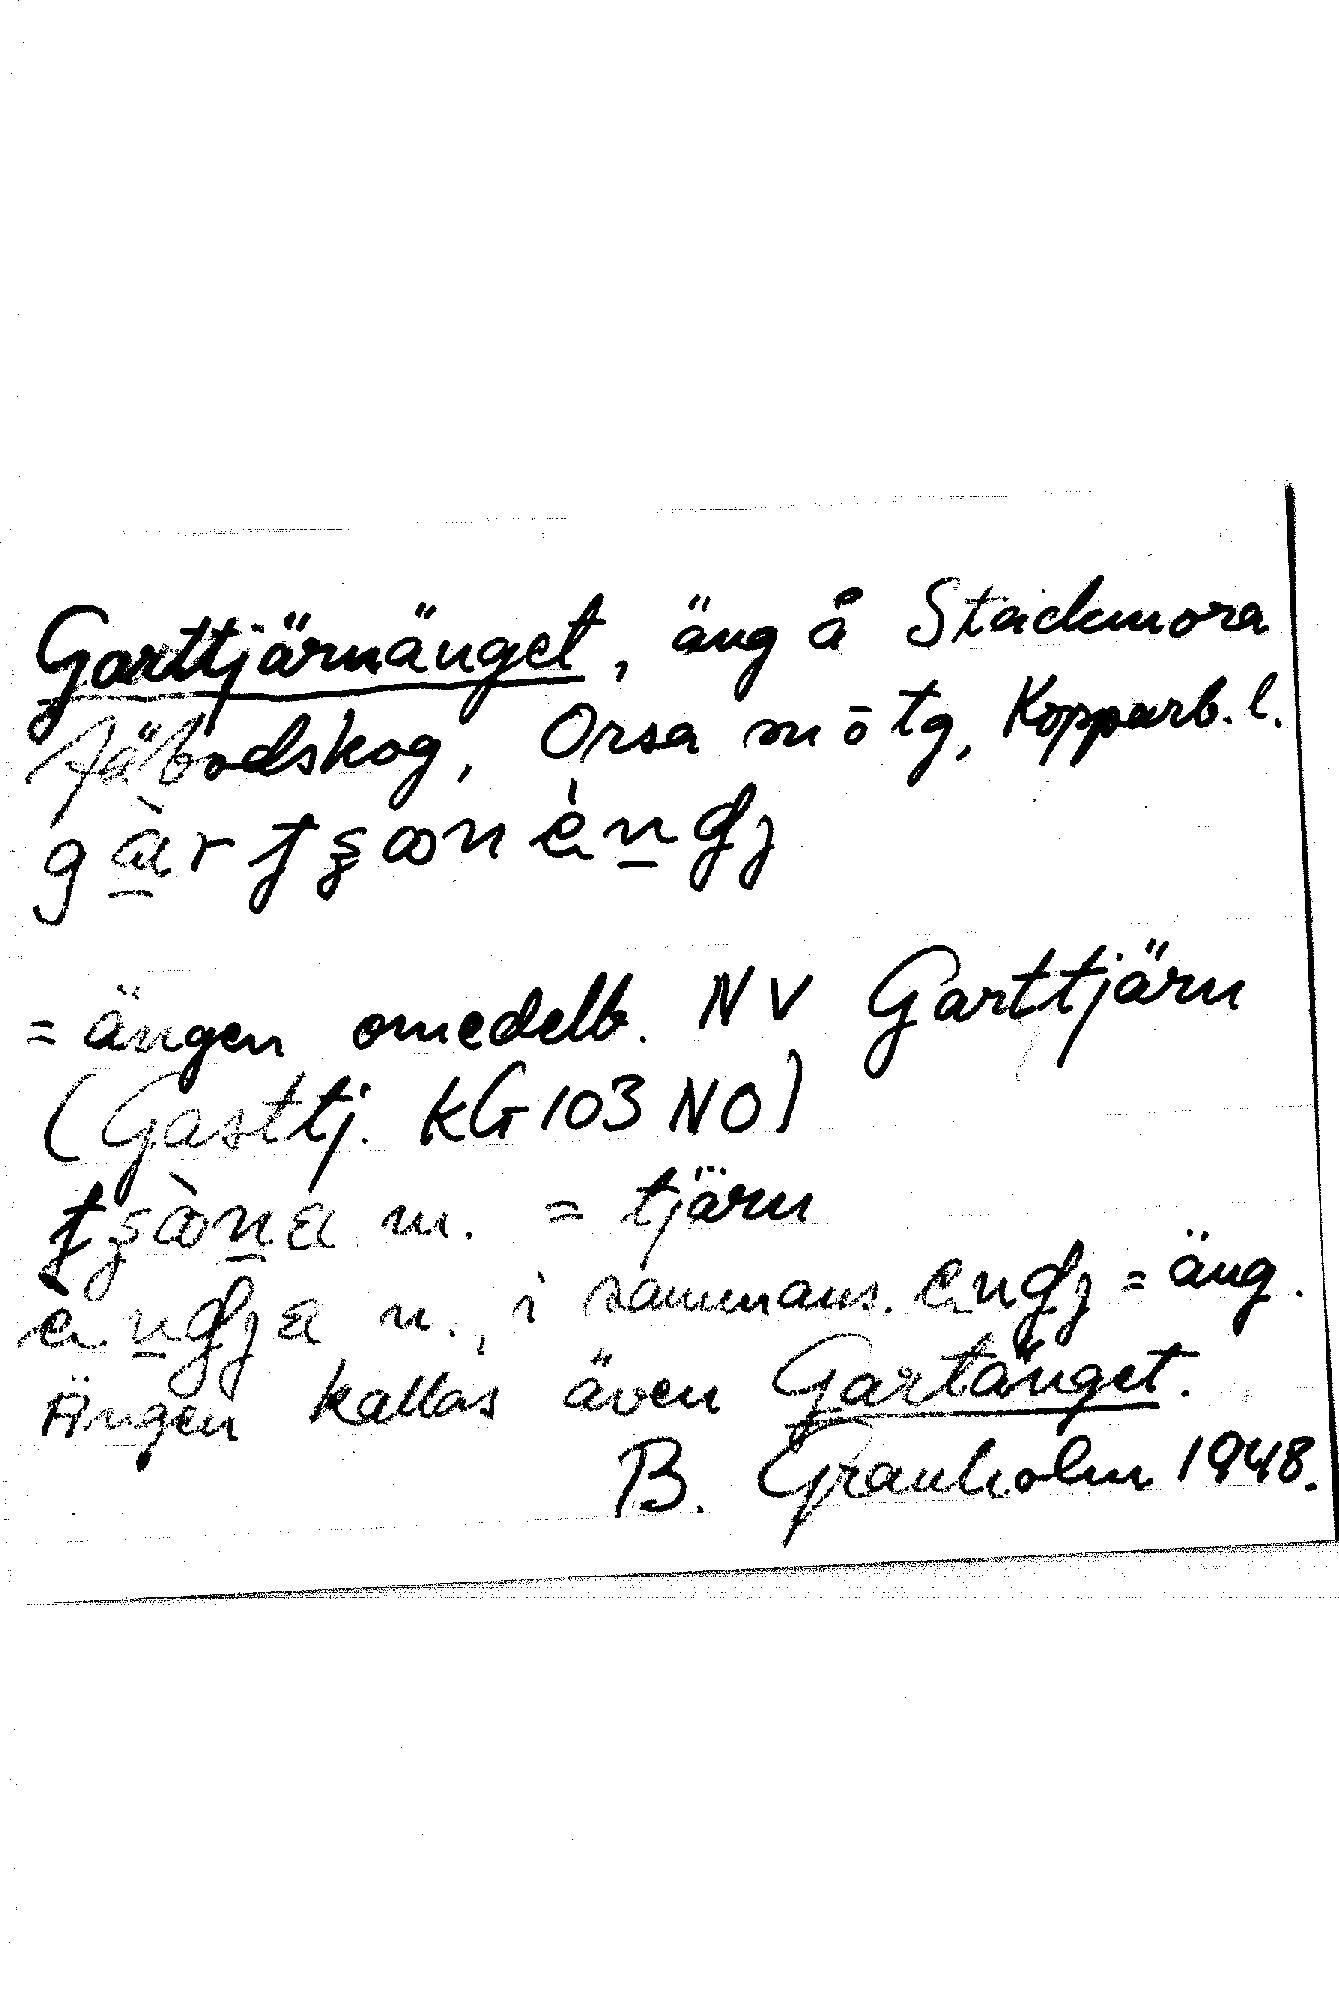 Garttjärnänget, äng å Stackmora
fäbodskog, Orsa sn ö tg, Kopparb. l.
= ängen omedelb. NV Garttjärn
(Gasttj. KG 103 NO)
m. = tjärn
n., i sammans. = äng.
Ängen kallas även Gartänget.
B. Granholm 1948.